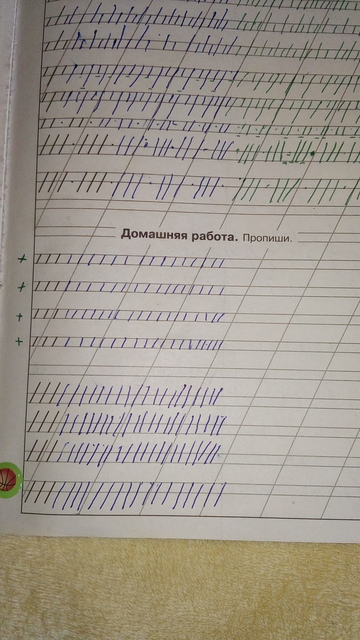 Домашняя работа. Пропиши.